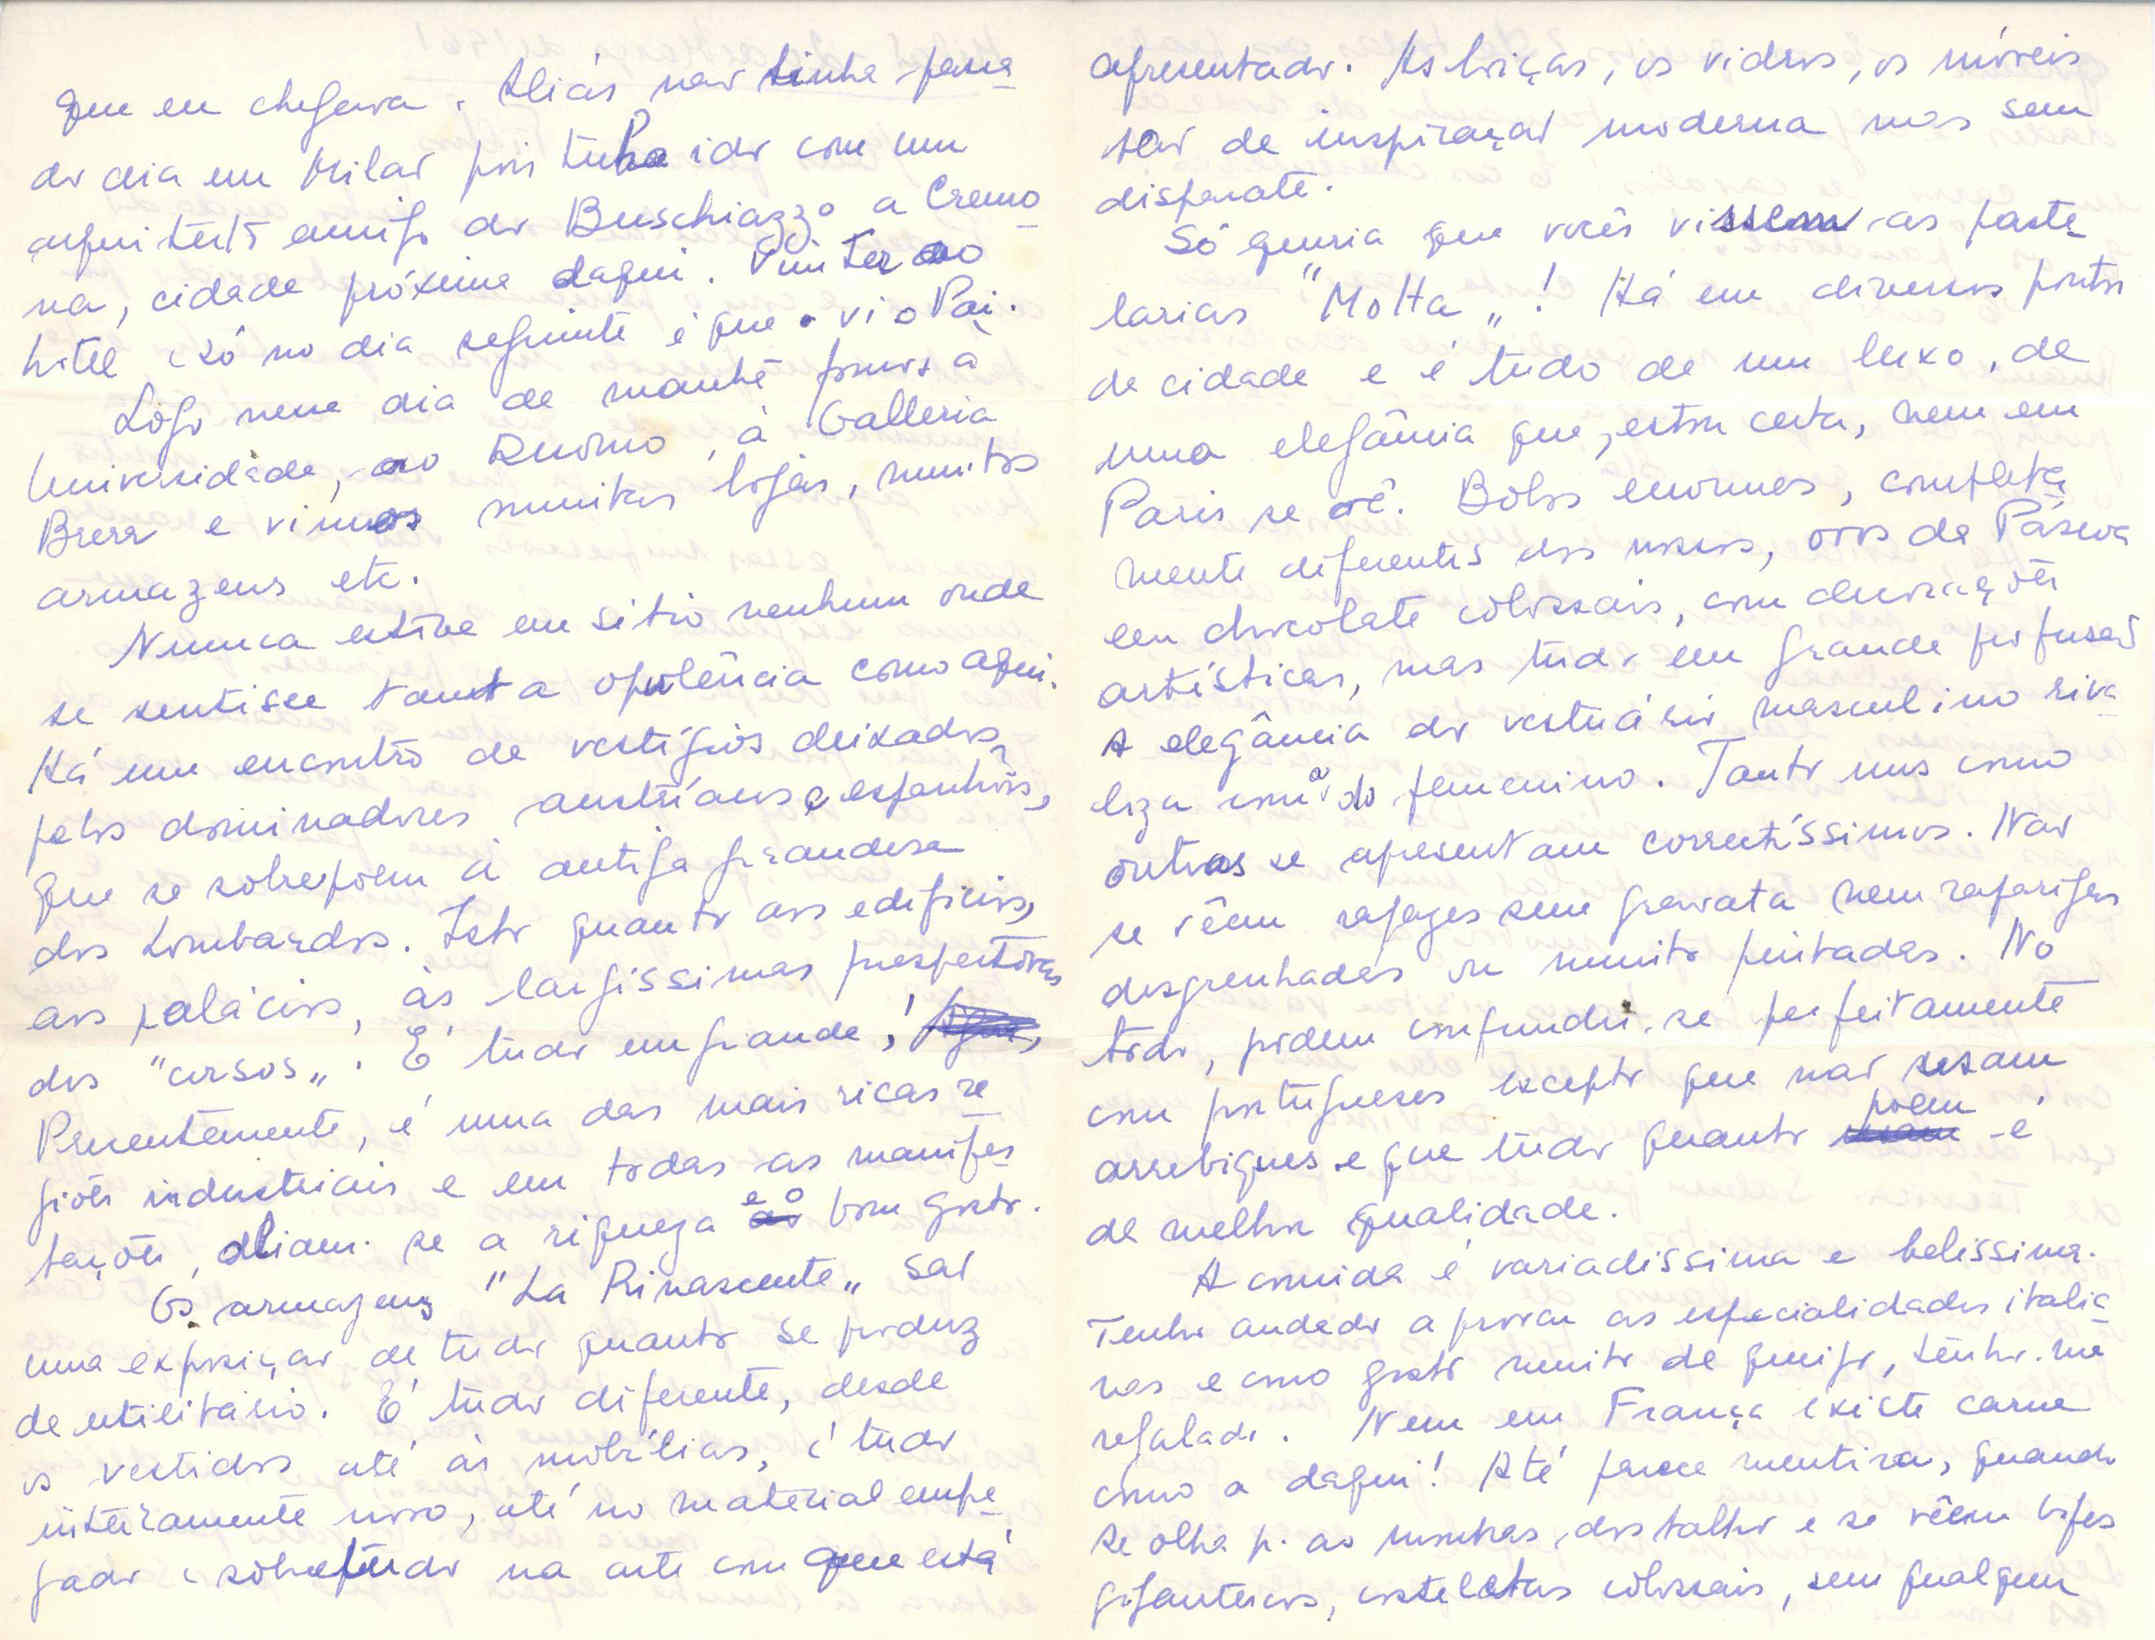 que eu chegava. Aliás não tinha passa
do dia em Milão pois tinha ido com um
arquitecto amigo do Buschiazzo a Cremo
na, cidade próxima daqui. Vim ter ao
hotel e só no dia seguinte é que vi o Pai.
Logo nesse dia de manhã fomos à
Universidade, ao Duomo, à Galleria
Brera e vimos muitas lojas, muitos
armazens etc.
Nunca estive em sitio nenhum onde
se sentisse tanta opulência como aqui.
Há um encontro de vestígios deixados
pelos dominadores austríacos e espanhois,
que se sobrepoem à antiga grandesa
dos Lombardos. Isto quanto aos edificios,
aos palácios, às larguissimas prespectivas
dos "corsos„. É tudo em grande!
Presentemente, é uma das mais ricas re
giões industriais e em todas as manifes
tações, aliam-se a riqueza e o bom gosto.
Os armazens "La Rinascente„ são
uma exposição de tudo quanto se produz
de utilitário. É tudo diferente, desde
os vestidos até às mobílias, é tudo
inteiramente novo, até no material empe
gado e sobretudo na arte com que está
apresentado. As loiças, os vidros, os móveis
são de inspiração moderna mas sem
disparate.
Só queria que vocês vissem as paste
larias "Motta„! Há em diversos pontos
da cidade e é tudo de um luxo, de
uma elegância que, estou certa, nem em
Paris se vê. Bolos enormes, completa
mente diferentes dos nossos, ovos da Páscoa
em chocolate colossais, com decorações
artísticas, mas tudo em grande profusão
A elegância do vestuário masculino riva
liza com a do femenino. Tanto uns como
outros se apresentam correctíssimos. Não
se vêem rapazes sem gravata nem raparigas
desgrenhadas ou muito pintadas. No
todo, podem confundir-se perfeitamente
com portugueses excepto que não usam
arrebiques e que tudo quanto poem é
de melhor qualidade.
A comida é variadissima e belissima.
Tenho andado a provar as especialidades italia
nas e como gosto muito de queijo, tenho-me
regalado. Nem em França existe carne
como a daqui! Até parece mentira, quando
se olha p. as montras dos talhos e se vêem bifes
gigantescos, costeletas colossais, sem qualquer